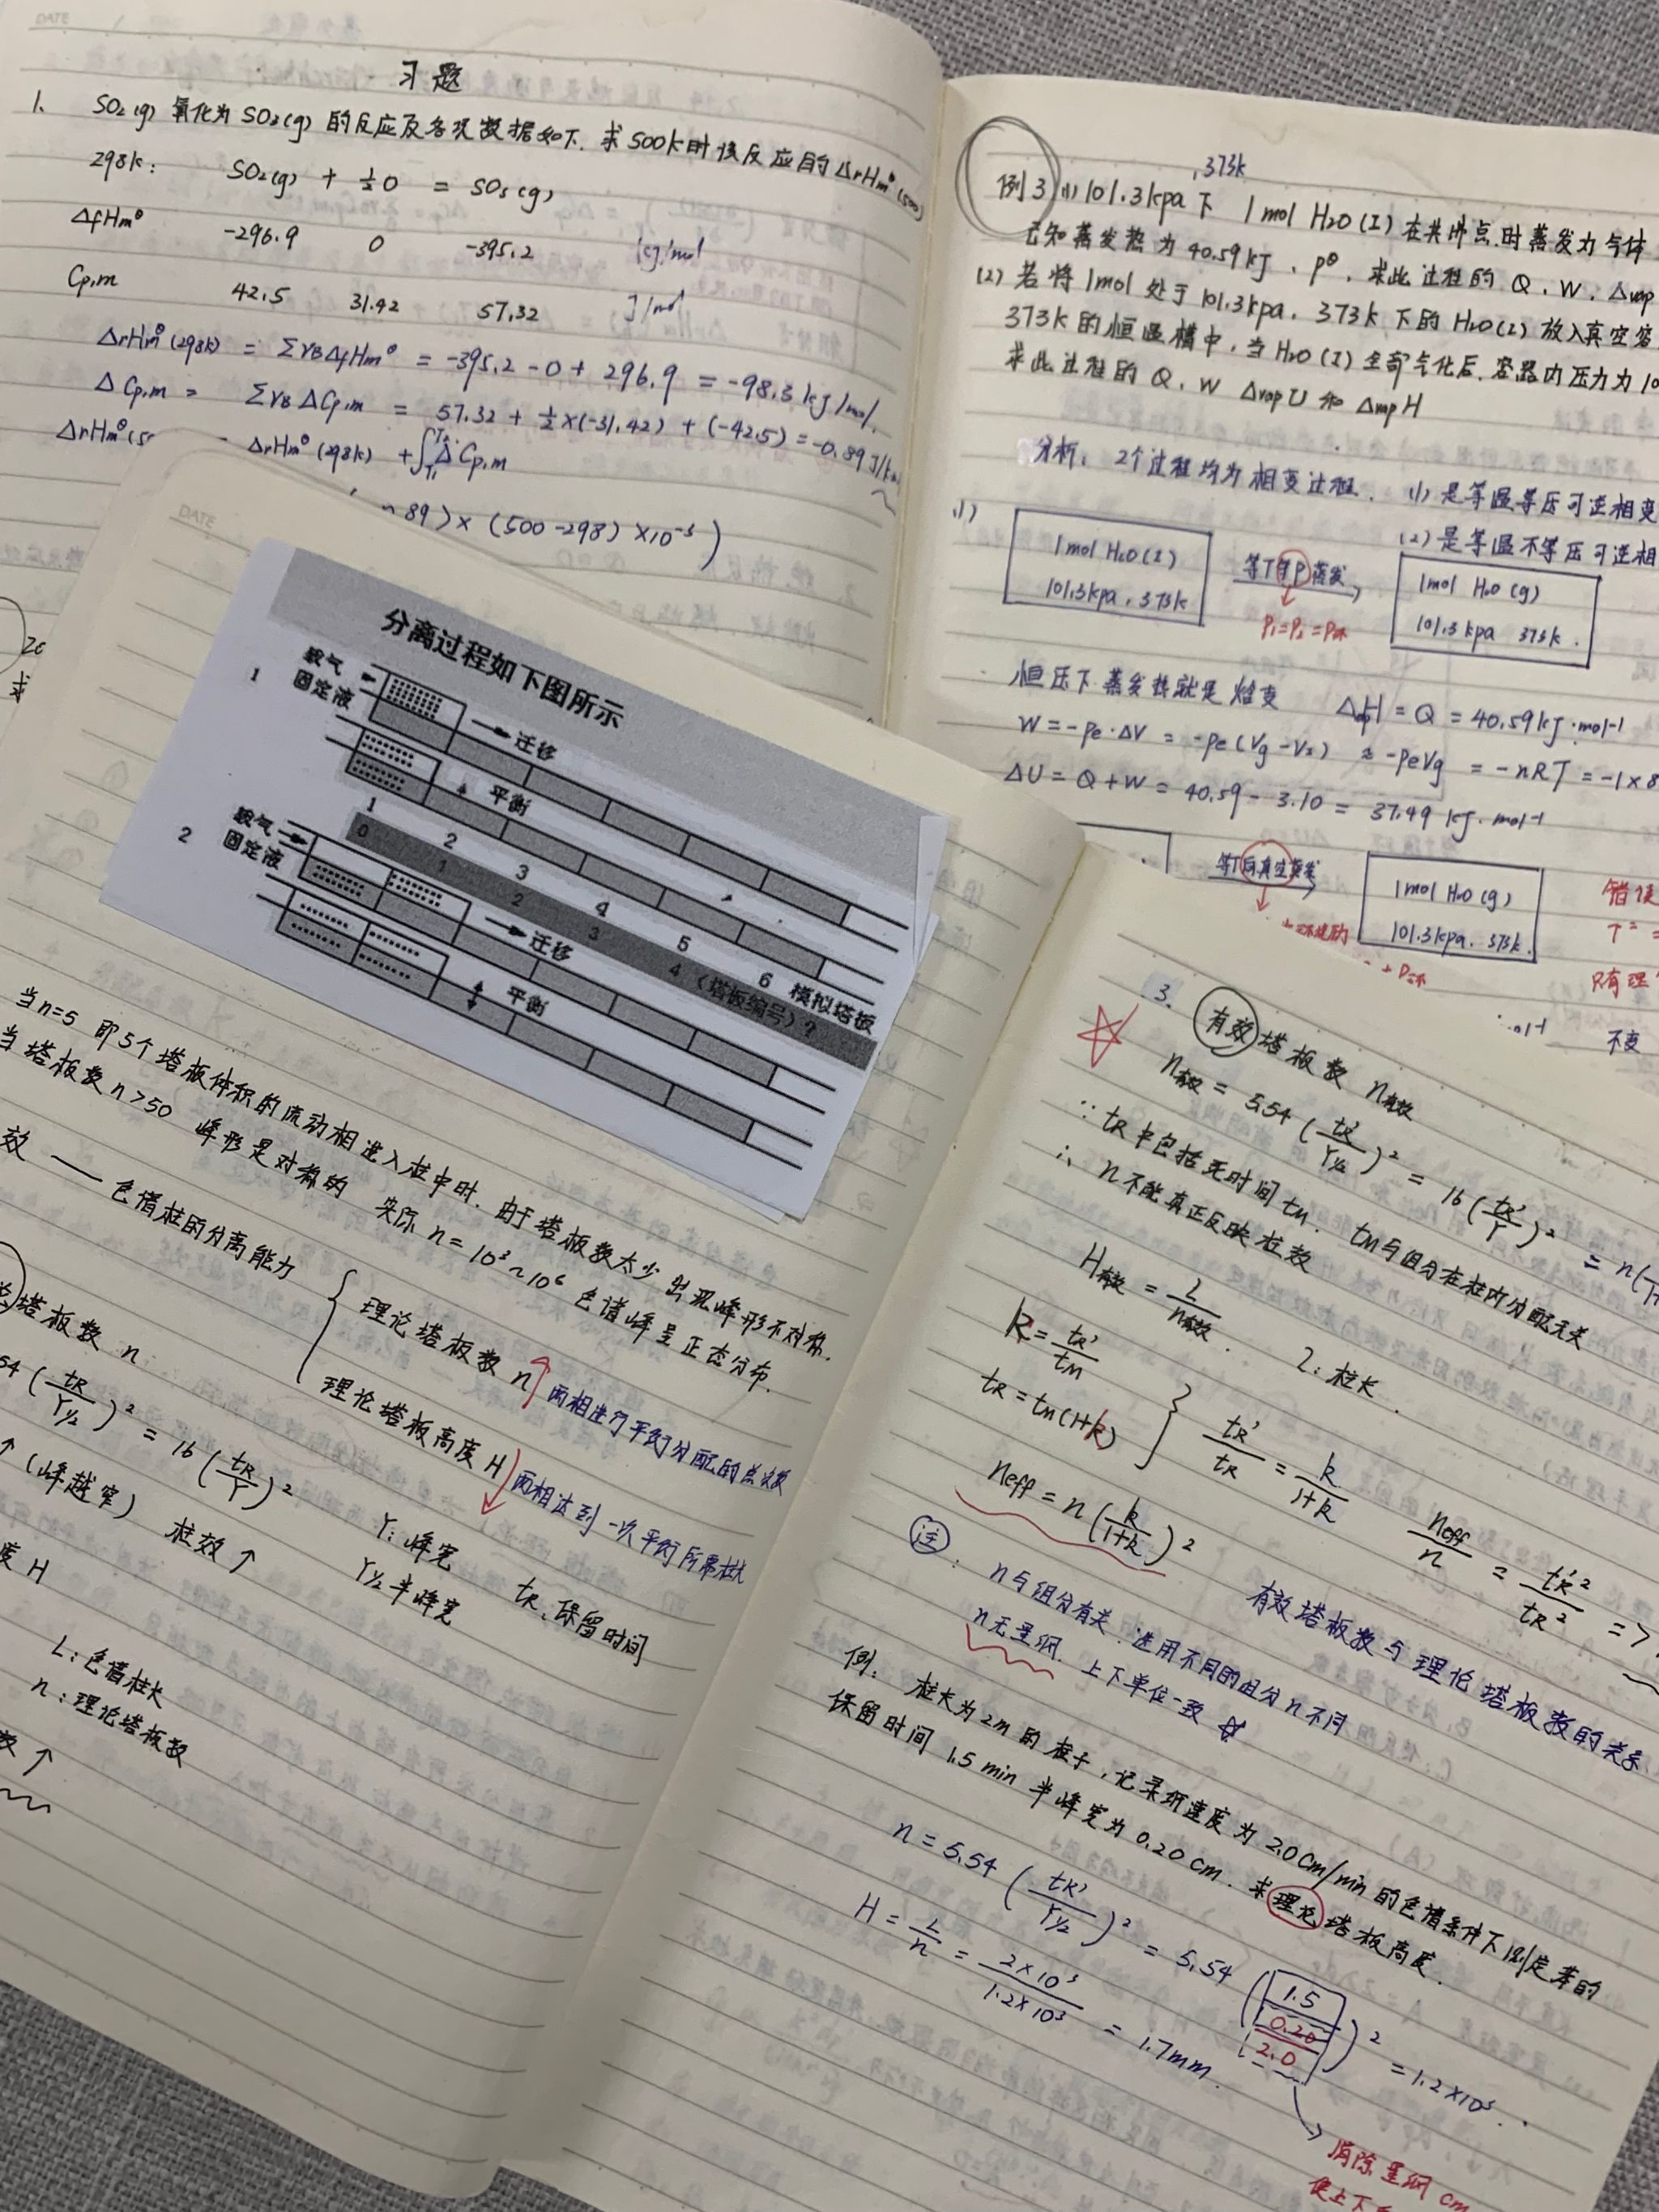 习题
1. SO₂(g) 氧化为 SO₃(g) 的反应及各项数据如下. 求500K时该反应的ΔrHmᶿ(500)
298K: SO₂(g) + ½O = SO₃(g)
ΔfHmᶿ -296.9 0 -395.2 kJ/mol
Cp,m 42.5 31.42 57.32 J/mol
ΔrHmᶿ(298K) = ΣγBΔfHmᶿ = -395.2-0+296.9 = -98.3 kJ/mol.
ΔCp,m = ΣγBΔCp,m = 57.32 + ½×(-31.42) + (-42.5) = -0.89 J/k
ΔrHmᶿ(5 ΔrHmᶿ(298K) + ∫T₁T₂ ΔCp,m
89)×(500-298)×10⁻³)
求
例3 (1) 101.3kpa下 ,373K 1mol H₂O(l) 在其沸点时蒸发为气体
已知蒸发热为40.59kJ, pᶿ, 求此过程的 Q、W、Δvap
(2) 若将1mol处于101.3kpa, 373K下的H₂O(l)放入真空容
373K的恒温槽中, 当H₂O(l)全部气化后, 容器内压力为10
求此过程的 Q、W ΔvapU 和 ΔvapH
分析: 2个过程均为相变过程. (1) 是等温等压可逆相变
(2) 是等温不等压可逆相
(1)
1mol H₂O(l)
101.3kpa, 373K
等T等P蒸发
P₁=P₂=P环
1mol H₂O(g)
101.3kpa 373K.
恒压下蒸发热就是焓变 ΔvapH = Q = 40.59kJ·mol⁻¹
W = -pe·ΔV = -pe(Vg-Vl) ≈ -peVg = -nRT = -1×8
ΔU = Q+W = 40.59-3.10 = 37.49 kJ·mol⁻¹
等T向真空蒸发
1mol H₂O(g)
101.3kpa. 373K.
≠P环
错误
不变
DATE
分离过程如下图所示
1 载气
固定液
迁移
平衡
1 2 3 4 5 6 模拟塔板
0 1 2 3 4 (塔板编号)?
2 载气
固定液
迁移
平衡
当n=5 即5个塔板体积的流动相进入柱中时. 由于塔板数太少 出现峰形不对称.
当塔板数n>50 峰形是对称的 实际 n=10³~10⁶ 色谱峰呈正态分布.
效 —— 色谱柱的分离能力
理论塔板数n↑ 两相进行平衡分配的总次数
理论塔板高度H↓ 两相达到一次平衡所需柱长
塔板数 n
54(tR/Y½)² = 16(tR/Y)²
Y: 峰宽 tR: 保留时间
Y½ 半峰宽
↑(峰越窄) 柱效↑
度 H
L: 色谱柱长
n: 理论塔板数
数↑
3. 有效塔板数 n有效
n有效 = 5.54(tR'/Y½)² = 16(tR'/Y)² = n(
∵ tR中包括死时间tM. tM与组分在柱内分配无关
∴ n不能真正反映柱效
H有效 = L/n有效. L: 柱长.
k = tR'/tM
tR = tM(1+k)
tR'/tR = k/1+k neff/n = tR'²/tR² =>
neff = n(k/1+k)² 有效塔板数与理论塔板数的关系
注: n与组分有关. 选用不同的组分n不同
n无量纲. 上下单位一致 ☆
例: 柱长为2m的柱子, 记录纸速度为2.0cm/min的色谱条件下测定苯的
保留时间 1.5min 半峰宽为0.20cm. 求理论塔板高度.
n = 5.54(tR'/Y½)² = 5.54(1.5/0.20/2.0)² = 1.2×10³.
H = L/n = 2×10³/1.2×10³ = 1.7mm.
消除量纲 cm
使上下